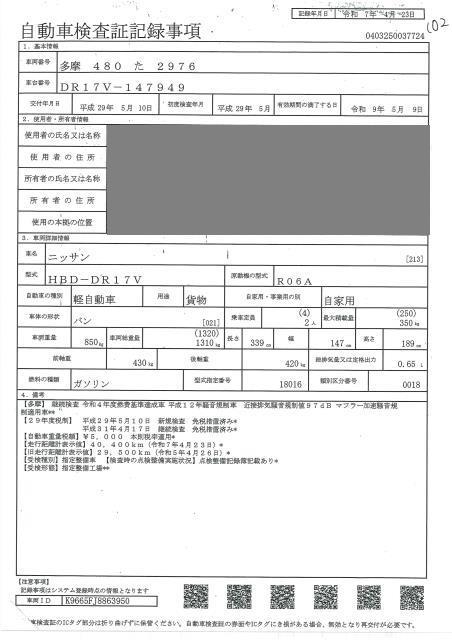 記録年月日 令和 7年 4月 23日
自動車検査証記録事項
0403250037724
1. 基本情報
車両番号 多摩 480 た 2976
車台番号 DR17V-147949
交付年月日 平成 29年 5月 10日 初度検査年月 平成 29年 5月 有効期間の満了する日 令和 9年 5月 9日
2. 使用者・所有者情報
使用者の氏名又は名称
使用者の住所
所有者の氏名又は名称
所有者の住所
使用の本拠の位置
3. 車両詳細情報
車名 ニッサン [213]
型式 HBD-DR17V 原動機の型式 R06A
自動車の種別 軽自動車 用途 貨物 自家用・事業用の別 自家用
車体の形状 バン [021] 乗車定員 (4) 2人 最大積載量 (250) 350kg
車両重量 850kg 車両総重量 (1320) 1310kg 長さ 339cm 幅 147cm 高さ 189cm
前軸重 430kg 後軸重 420kg 総排気量又は定格出力 0.65L
燃料の種類 ガソリン 型式指定番号 18016 類別区分番号 0018
4. 備考
[多摩] 継続検査 令和4年度燃費基準達成車 平成12年軽音規制車 近接排気騒音規制値97dB マフラー加速騒音規
制適用車**
[29年度税制] 平成29年5月10日 新規検査 免税措置済み*
平成31年4月17日 継続検査 免税措置済み*
[自動車重量税額] ¥5,000 本則税率適用*
[走行距離計表示値] 40,400km (令和7年4月23日)*
[旧走行距離計表示値] 29,500km (令和5年4月26日)*
[受検種別] 指定整備車 [検査時の点検整備実施状況] 点検整備記録簿記載あり*
[受検形態] 指定整備工場**
【注意事項】
記録事項はシステム登録時点の情報となります
車両ID K9665FJ8863950
車検査証のICタグ部分は折り曲げずに保管ください。自動車検査証の券面やICタグにき損がある場合、無効となり再交付が必要です。